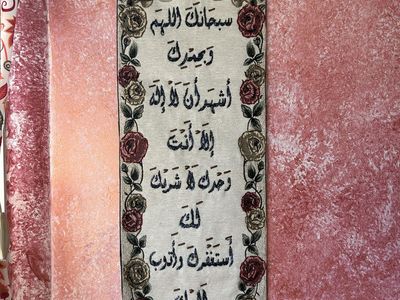 سبحانك اللهم
وبحمدك
أشهد أن لا إله
إلا أنت
وحدك لا شريك
لك
أستغفرك وأتوب